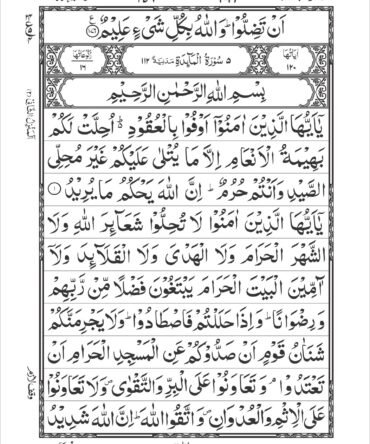 اَنْ تَضِلُّوْا ؕ وَاللّٰهُ بِكُلِّ شَیْءٍ عَلِیْمٌ ﴿۱۷۶﴾
اٰیَاتُهَا ۱۲۰ ۵ سُوْرَةُ الْمَآىِٕدَةِ مَدَنِیَّةٌ ۱۱۲ رُكُوْعَاتُهَا ۱۶
بِسْمِ اللّٰهِ الرَّحْمٰنِ الرَّحِیْمِ
یٰۤاَیُّهَا الَّذِیْنَ اٰمَنُوْۤا اَوْفُوْا بِالْعُقُوْدِ ؕ اُحِلَّتْ لَكُمْ
بَهِیْمَةُ الْاَنْعَامِ اِلَّا مَا یُتْلٰی عَلَیْكُمْ غَیْرَ مُحِلِّی
الصَّیْدِ وَاَنْتُمْ حُرُمٌ ؕ اِنَّ اللّٰهَ یَحْكُمُ مَا یُرِیْدُ ﴿۱﴾
یٰۤاَیُّهَا الَّذِیْنَ اٰمَنُوْا لَا تُحِلُّوْا شَعَآىِٕرَ اللّٰهِ وَلَا
الشَّهْرَ الْحَرَامَ وَلَا الْهَدْیَ وَلَا الْقَلَآىِٕدَ وَلَاۤ
آٰمِّیْنَ الْبَیْتَ الْحَرَامَ یَبْتَغُوْنَ فَضْلًا مِّنْ رَّبِّهِمْ
وَرِضْوَانًا ؕ وَاِذَا حَلَلْتُمْ فَاصْطَادُوْا ؕ وَلَا یَجْرِمَنَّكُمْ
شَنَاٰنُ قَوْمٍ اَنْ صَدُّوْكُمْ عَنِ الْمَسْجِدِ الْحَرَامِ اَنْ
تَعْتَدُوْا ۘ وَتَعَاوَنُوْا عَلَی الْبِرِّ وَالتَّقْوٰی ۪ وَلَا تَعَاوَنُوْا
عَلَی الْاِثْمِ وَالْعُدْوَانِ ۪ وَاتَّقُوا اللّٰهَ ؕ اِنَّ اللّٰهَ شَدِیْدُ